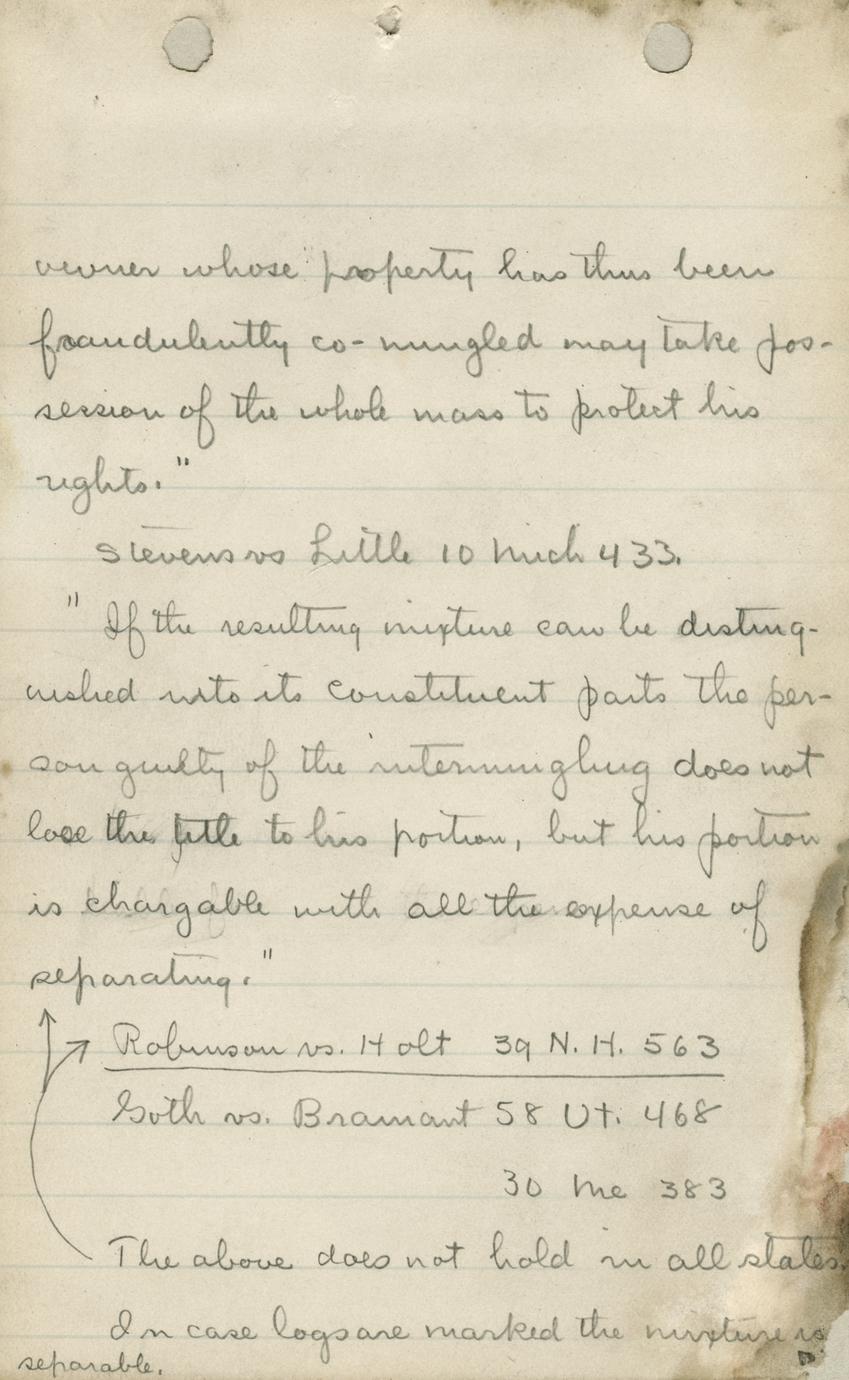 owner whose property has thus been
fraudulently co-mingled may take pos-
session of the whole mass to protect his
rights."
Stevens vs Little 10 Mich 433.
"If the resulting mixture can be disting-
uished into its constituent parts the per-
son guilty of the intermingling does not
lose the title to his portion, but his portion
is chargable with all the expense of
separating."
Robinson vs. Holt 39 N. H. 563
Goth vs. Bramant 58 Vt. 468
30 Me 383
The above does not hold in all states.
In case logs are marked the mixture is
separable.